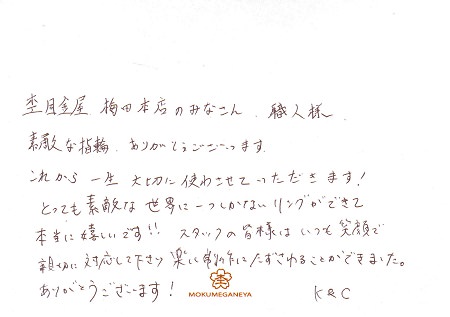 杢目金屋 梅田本店のみなさん、職人様
素敵な指輪、ありがとうございます。
これから一生大切に使わせていただきます!
とっても素敵な世界に一つしかないリングができて
本当に嬉しいです!! スタッフの皆様はいつも笑顔で
親切に対応して下さり楽しく制作にたずさわることができました。
ありがとうございます!
K&C
MOKUMEGANEYA